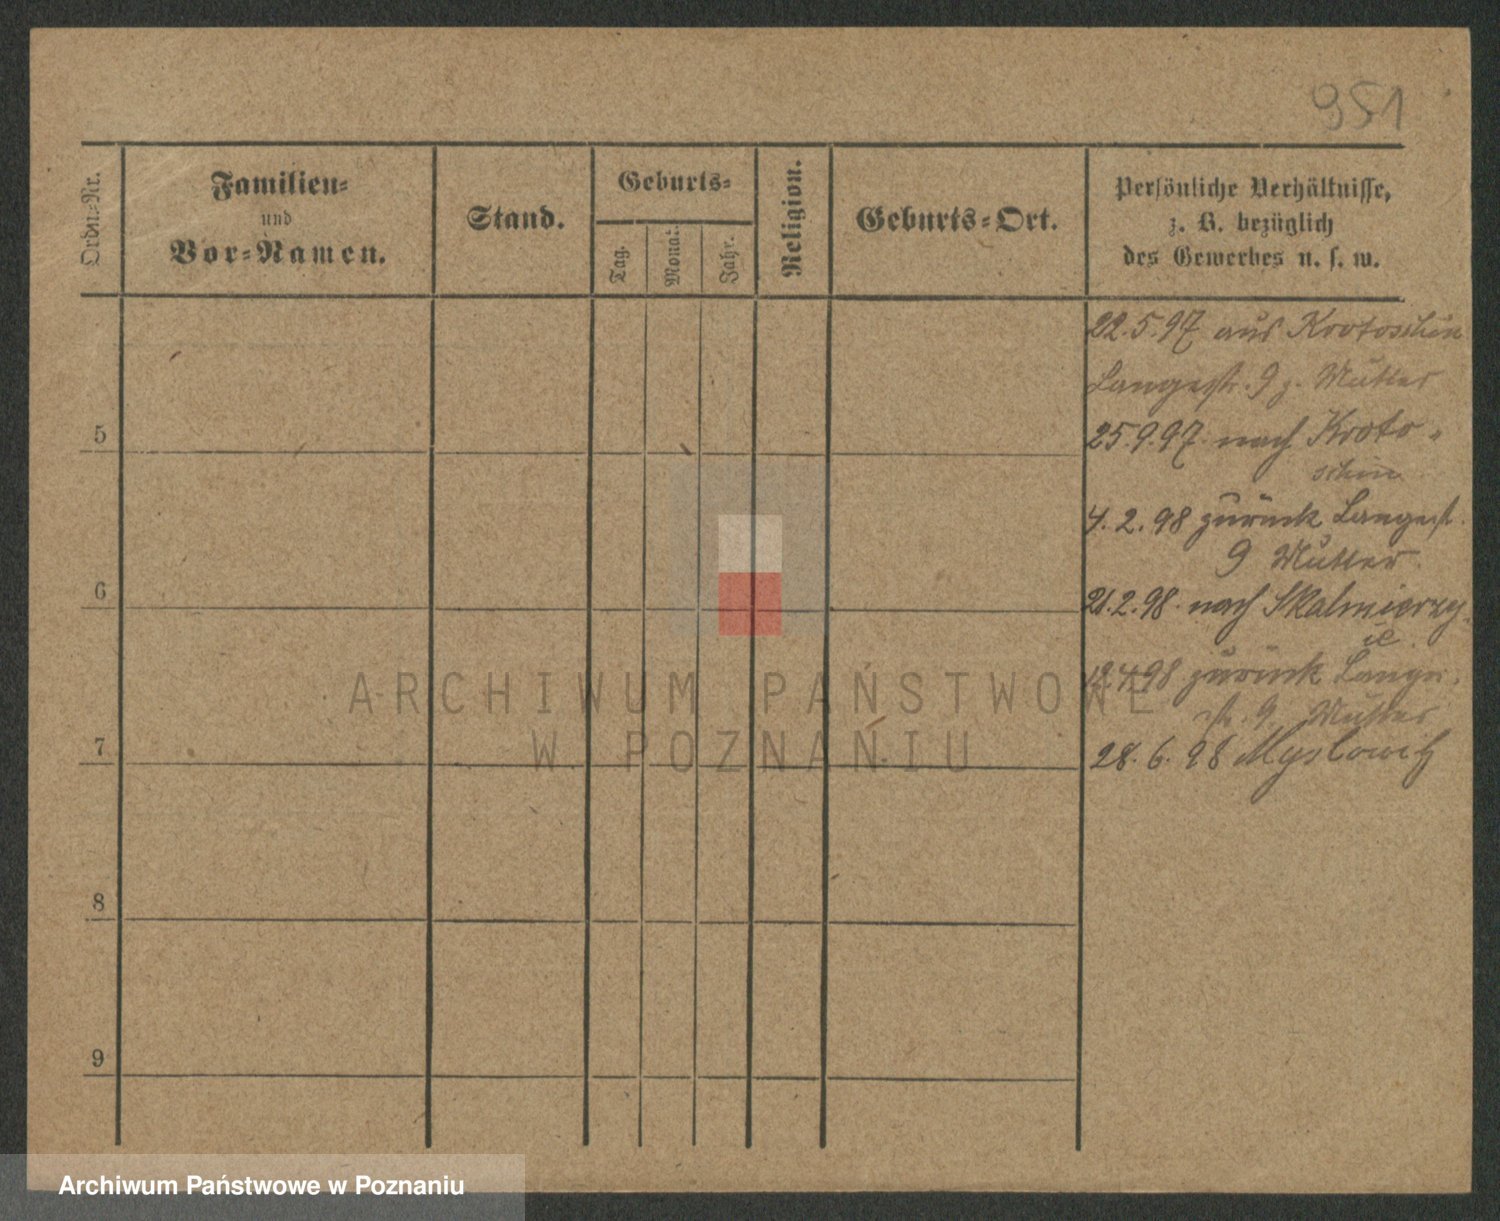 951
Ordn.-Nr.
Familien-
und
Vor-Namen.
Stand.
Geburts-
Tag.
Monat.
Jahr.
Religion.
Geburts-Ort.
Persönliche Verhältnisse,
z. B. bezüglich
des Gewerbes u. s. w.
22.5.97 aus Krotoschin
Langestr. 9 z. Mutter
5
25.9.97 nach Kroto-
schin
4.2.98 zurück Langestr.
9 Mutter.
6
21.2.98. nach Skalmierzy-
ic
4.98 zurück Lange-
str. 9. Mutter
7
28.6.98 Myslowitz
8
9
ARCHIWUM PAŃSTWOWE
W POZNANIU
Archiwum Państwowe w Poznaniu